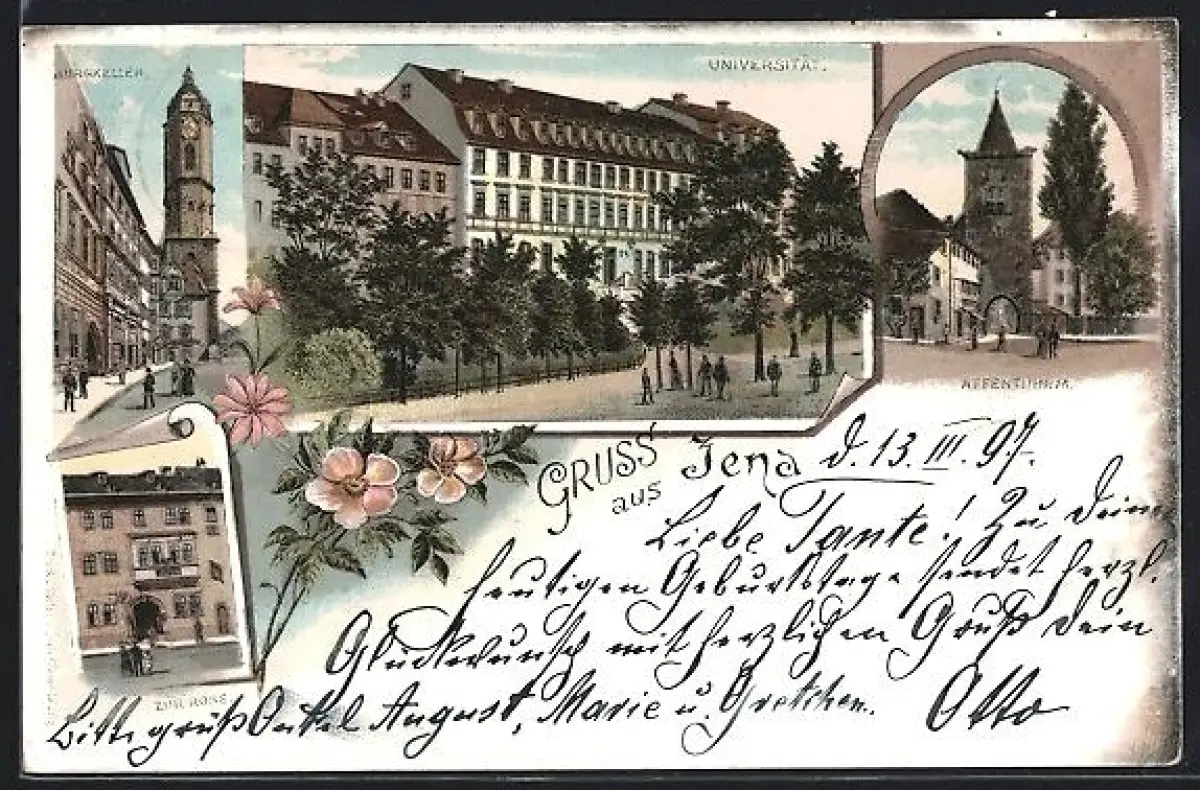 BURGKELLER.
UNIVERSITÄT.
AFFENTHURM.
ZUR ROSE
GRUSS aus Jena d. 13. III. 97.
Liebe Tante! Zu Deinem
heutigen Geburtstage sendet herzl.
Glückwunsch mit herzlichem Gruß Dein
Otto
Bitte grüß Onkel August, Marie u. Gretchen.